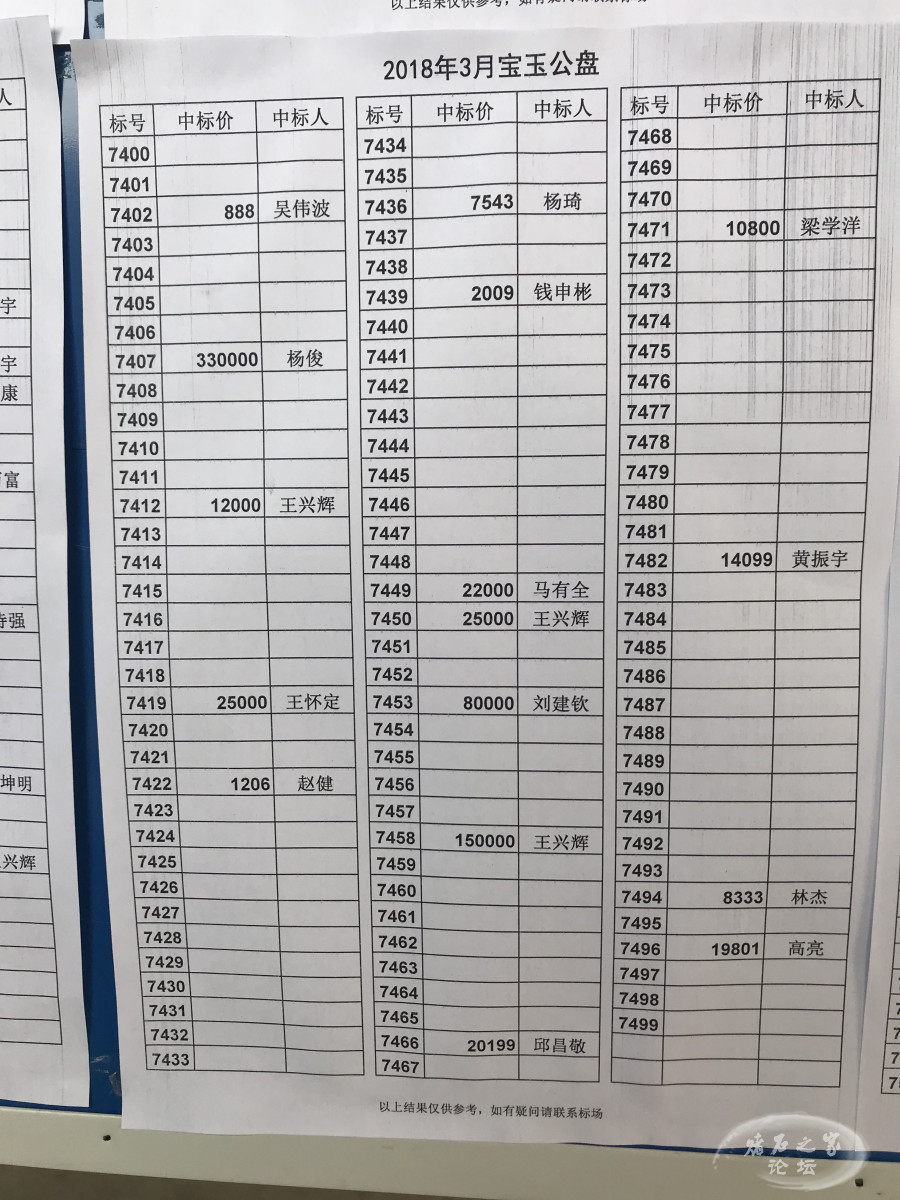 以上结果仅供参考，如有疑问请联系标场
人
宇
宇
康
富
强
坤明
兴辉
2018年3月宝玉公盘
标号 中标价 中标人
7400
7401
7402 888 吴伟波
7403
7404
7405
7406
7407 330000 杨俊
7408
7409
7410
7411
7412 12000 王兴辉
7413
7414
7415
7416
7417
7418
7419 25000 王怀定
7420
7421
7422 1206 赵健
7423
7424
7425
7426
7427
7428
7429
7430
7431
7432
7433
标号 中标价 中标人
7434
7435
7436 7543 杨琦
7437
7438
7439 2009 钱申彬
7440
7441
7442
7443
7444
7445
7446
7447
7448
7449 22000 马有全
7450 25000 王兴辉
7451
7452
7453 80000 刘建钦
7454
7455
7456
7457
7458 150000 王兴辉
7459
7460
7461
7462
7463
7464
7465
7466 20199 邱昌敬
7467
标号 中标价 中标人
7468
7469
7470
7471 10800 梁学洋
7472
7473
7474
7475
7476
7477
7478
7479
7480
7481
7482 14099 黄振宇
7483
7484
7485
7486
7487
7488
7489
7490
7491
7492
7493
7494 8333 林杰
7495
7496 19801 高亮
7497
7498
7499
以上结果仅供参考，如有疑问请联系标场
论坛